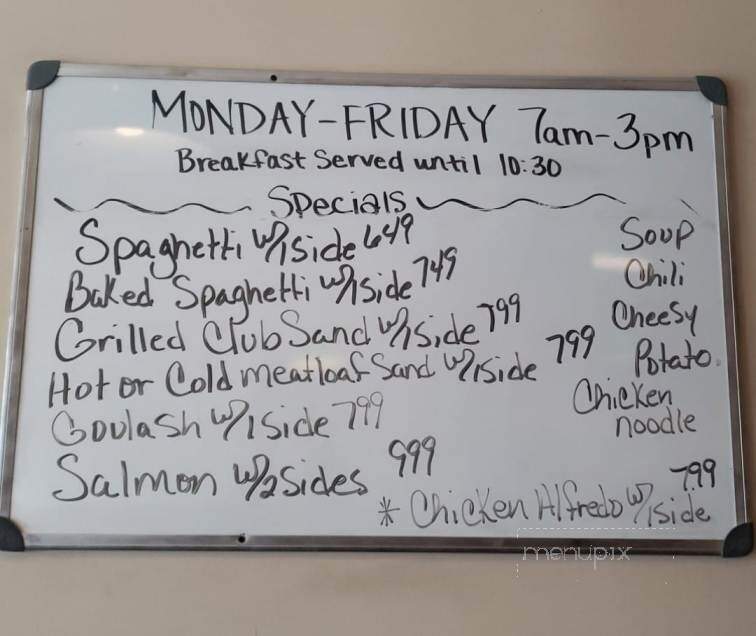 MONDAY-FRIDAY 7am-3pm
Breakfast Served until 10:30
Specials
Spaghetti w/1side 649
Baked Spaghetti w/1side 749
Grilled Club Sand w/1side 799
Hot or Cold meatloaf Sand w/1side 799
Goulash w/1 side 799
Salmon w/2sides 999
* Chicken Alfredo w/1side 799
Soup
Chili
Cheesy
Potato
Chicken
noodle
menupix